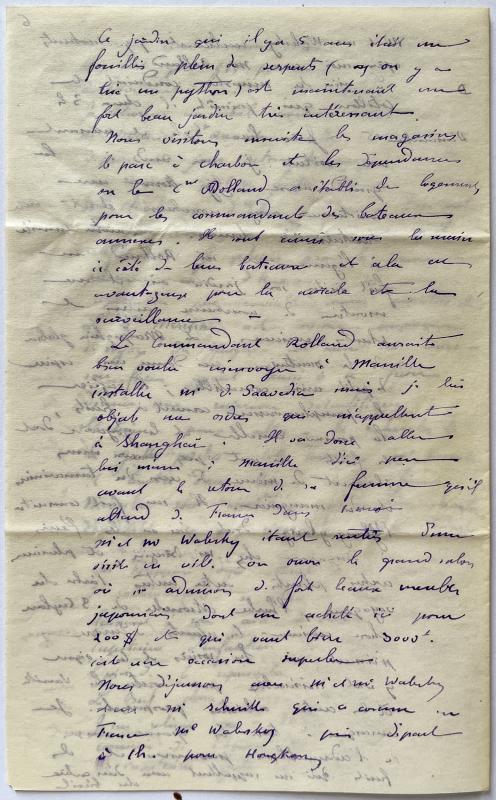 Ce jardin qui il y a 5 ans était un
fouillis plein de serpents (on y a
tué un python) est maintenant un
fort beau jardin très intéressant.
Nous visitons ensuite les magasins
le parc à charbon et les dépendances
où le Ct Rolland a établi des logements
pour les commandants des bateaux
annexes. Ils sont ainsi sous la main
à côté de leurs bateaux et cela est
avantageux pour la and la
surveillance —
Le Commandant Rolland aurait
bien voulu m'envoyer à Manille
installer Mr de Saavedra mais je lui
objecte mes ordres qui m'appellent
à Shanghaï. Il va donc aller
lui même à Manille d'ici peu
avant le retour de sa femme qu'il
attend de France dans
Mr et Me Walesky étant rentrés d'une
visite en ville. On ouvre le grand salon
où j'admire de fort beaux meubles
japonais dont un acheté ici pour
200 $ et qui vaut bien 3000f.
C'est une occasion superbe
Nous déjeunons avec Mr et Me Walesky
et Mr qui a connu en
France Me Walesky — puis départ
à 1h. pour Hongkong